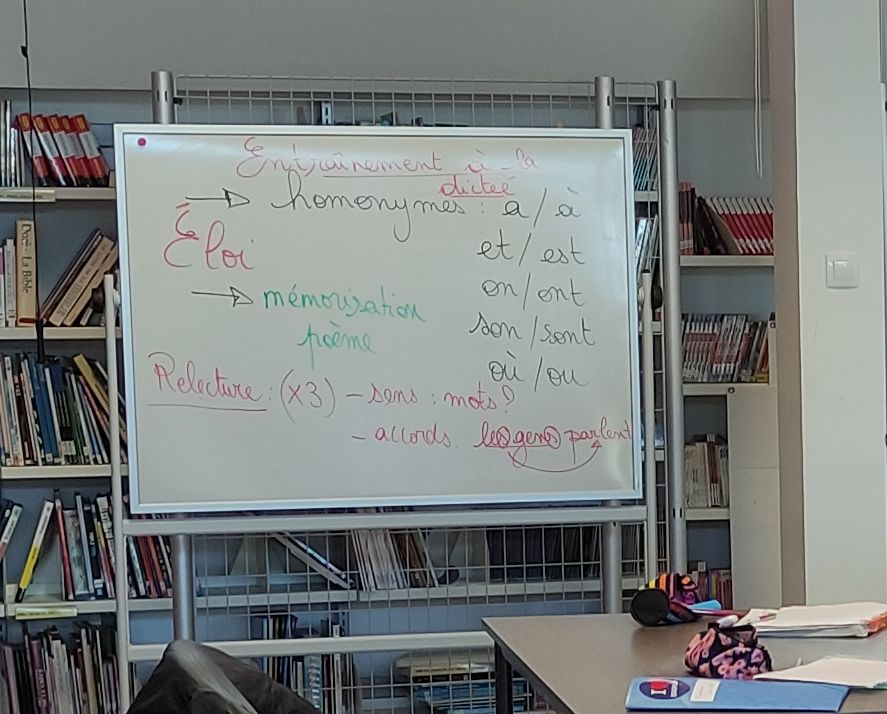 Entraînement à la
dicteé
→ homonymes : a / à
et / est
Éloi
on / ont
→ mémorisation
poème
son / sont
où / ou
Relecture : (x3) - sens : mots ?
- accords. les gens parlent
La Bible